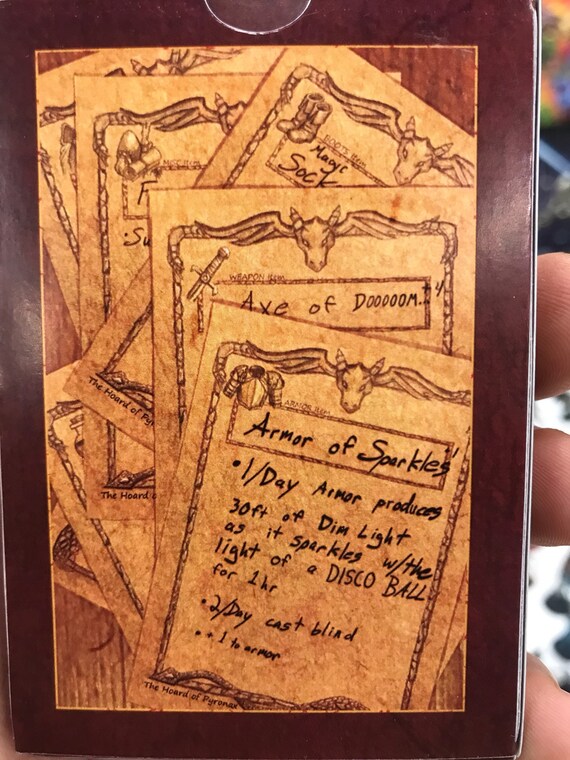 BOOTS ITEM
Magic
Sock
MISC ITEM
F
• Su
WEAPON ITEM
Axe of DOOOOOM...
ARMOR ITEM
Armor of Sparkles
• 1/Day Armor produces
30ft of Dim Light
as it sparkles w/the
light of a DISCO BALL
for 1 hr
• 2/Day cast blind
• + 1 to armor
The Hoard of Pyronax
The Hoard of Pyr
The Hoard o